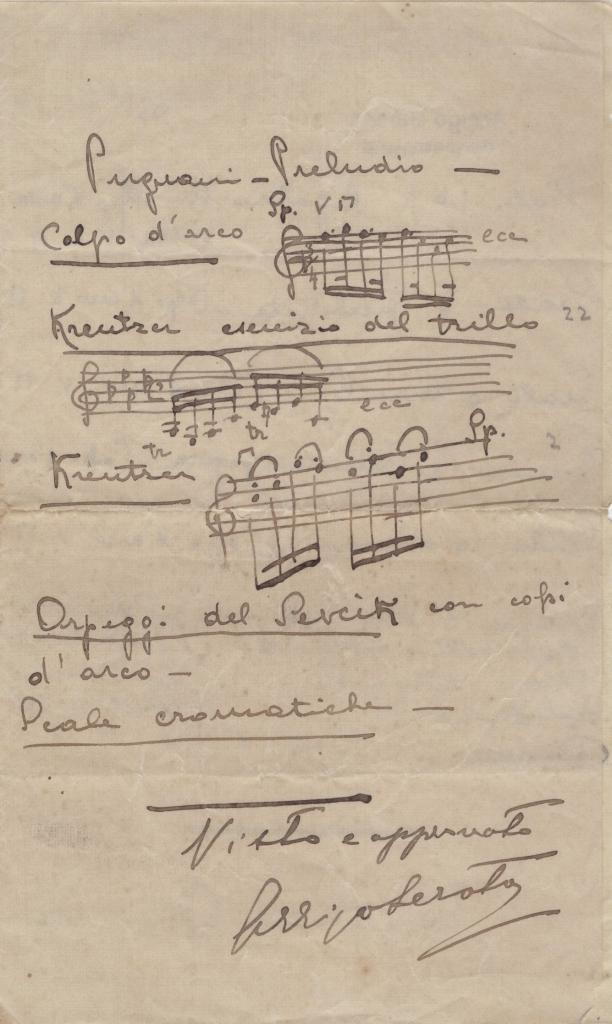 Pugnani - Preludio —
Sp. V
Colpo d'arco
ecc
Kreutzer esercizio del trillo 22
ecc
tr
tr
Kreutzer
Sp. 2
Arpeggi del Sevcik con colpi
d'arco —
Scale cromatiche —
Visto e approvato
Arrigo Serato